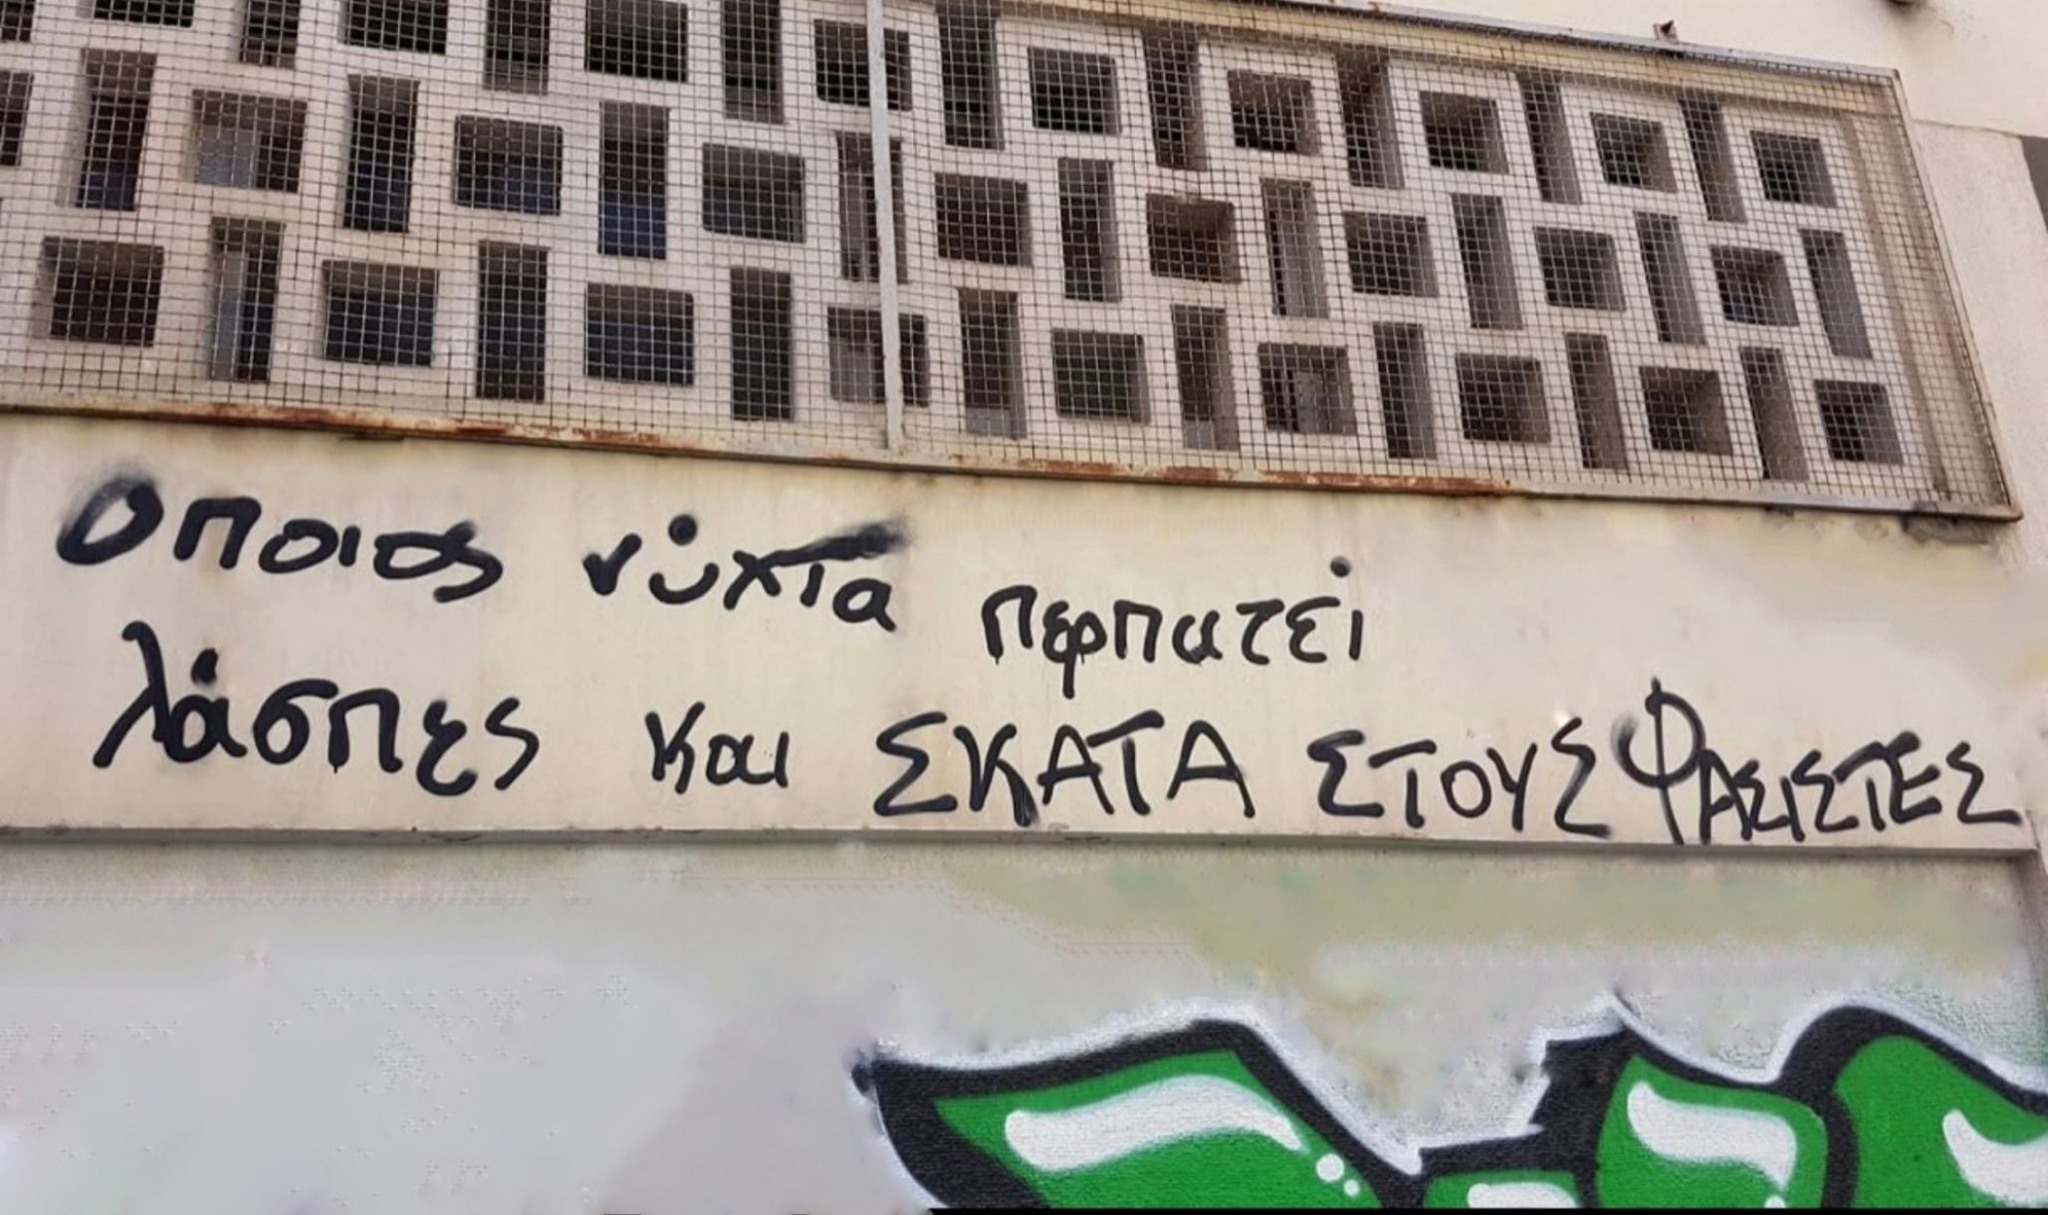 Οποιος νύχτα περπατεί
λάσπες και ΣΚΑΤΑ ΣΤΟΥΣ ΦΑΣΙΣΤΕΣ